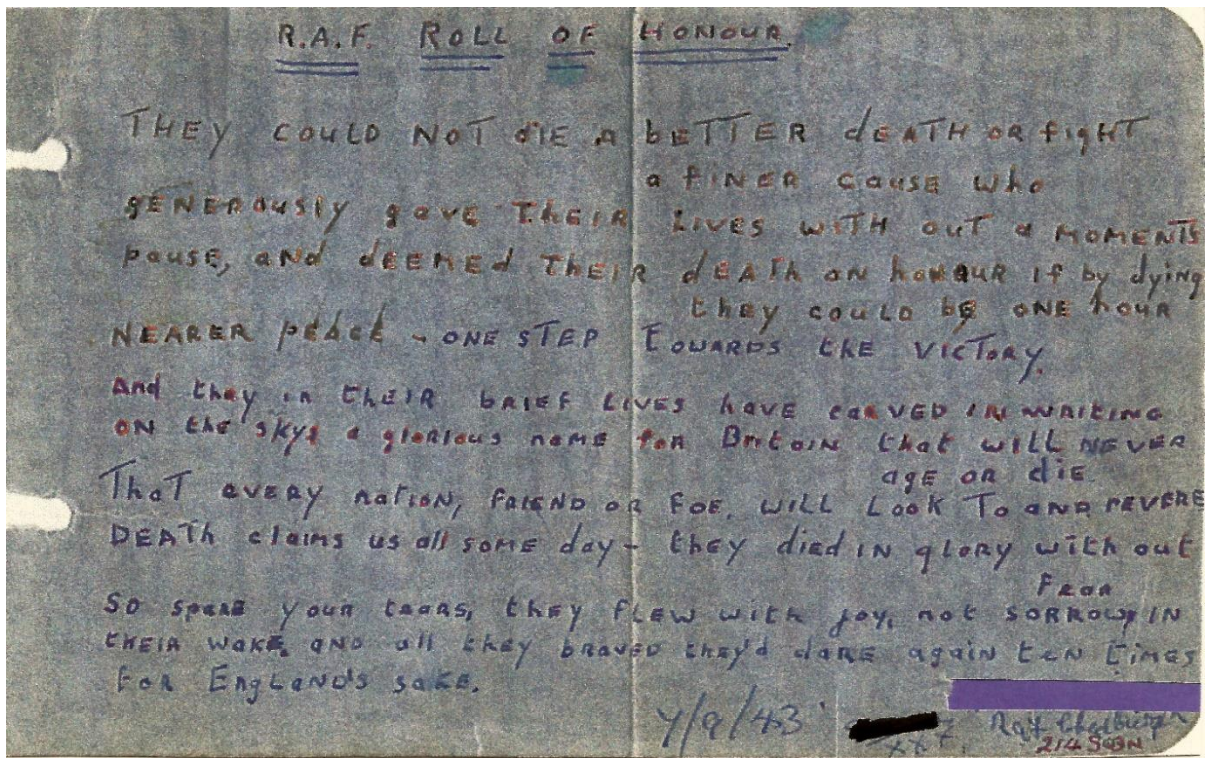 R.A.F. ROLL OF HONOUR.
THEY COULD NOT dIE A bETTER dEATH OR fighT
a fINER cause who
gENEROusly gave THEIR LIVES WITH out a MOMENTS
pause, AND dEEMEd THEIR dEATH an honouR If by dying
they could be ONE houR
NEARER pEacE - ONE STEP TOWARDS the VICTORY.
And they in THEIR bRIEf LIVES have caRVED IN WRITING
ON the skys a gloRious name foR BritaiN that will NEVER
age OR diE.
ThaT EVERY naTioN, fRIEND OR FOE, WILL LOOK To AND REVERE
DEATh claims us all some day - they died IN gloRy with out
FEaR
So spaRE youR tEaRs, they flEW with joy, not SORROW, IN
tHEIR wakE, aND all they bRavEd they'd daRE again tEN timEs
foR ENglaND's sakE.
Y/9/43
xxx.
214 SQDN